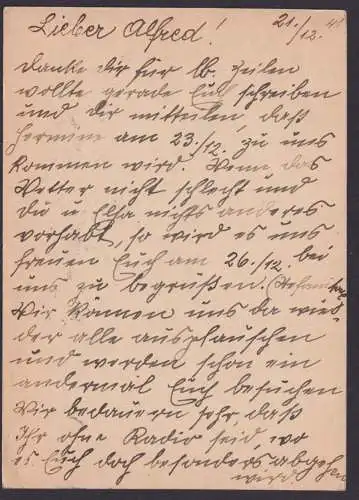 21./12. 41
Lieber Alfred!
Danke dir für lb. Zeilen
wollte gerade Euch schreiben
und dir mitteilen, daß
Hermine am 23./12. zu uns
kommen wird. Wenn das
Wetter nicht schlecht und
du u. Elsa nichts anderes
vorhabt, so wird es uns
freuen Euch am 26./12. bei
uns zu begrüßen. (Stefanital
Wir können uns da wie-
der alle ausplauschen
und werden schon ein
andermal Euch besuchen
Wir bedauern sehr, daß
Ihr ohne Radio seid, wo
es Euch doch besonders abgehen
wird.